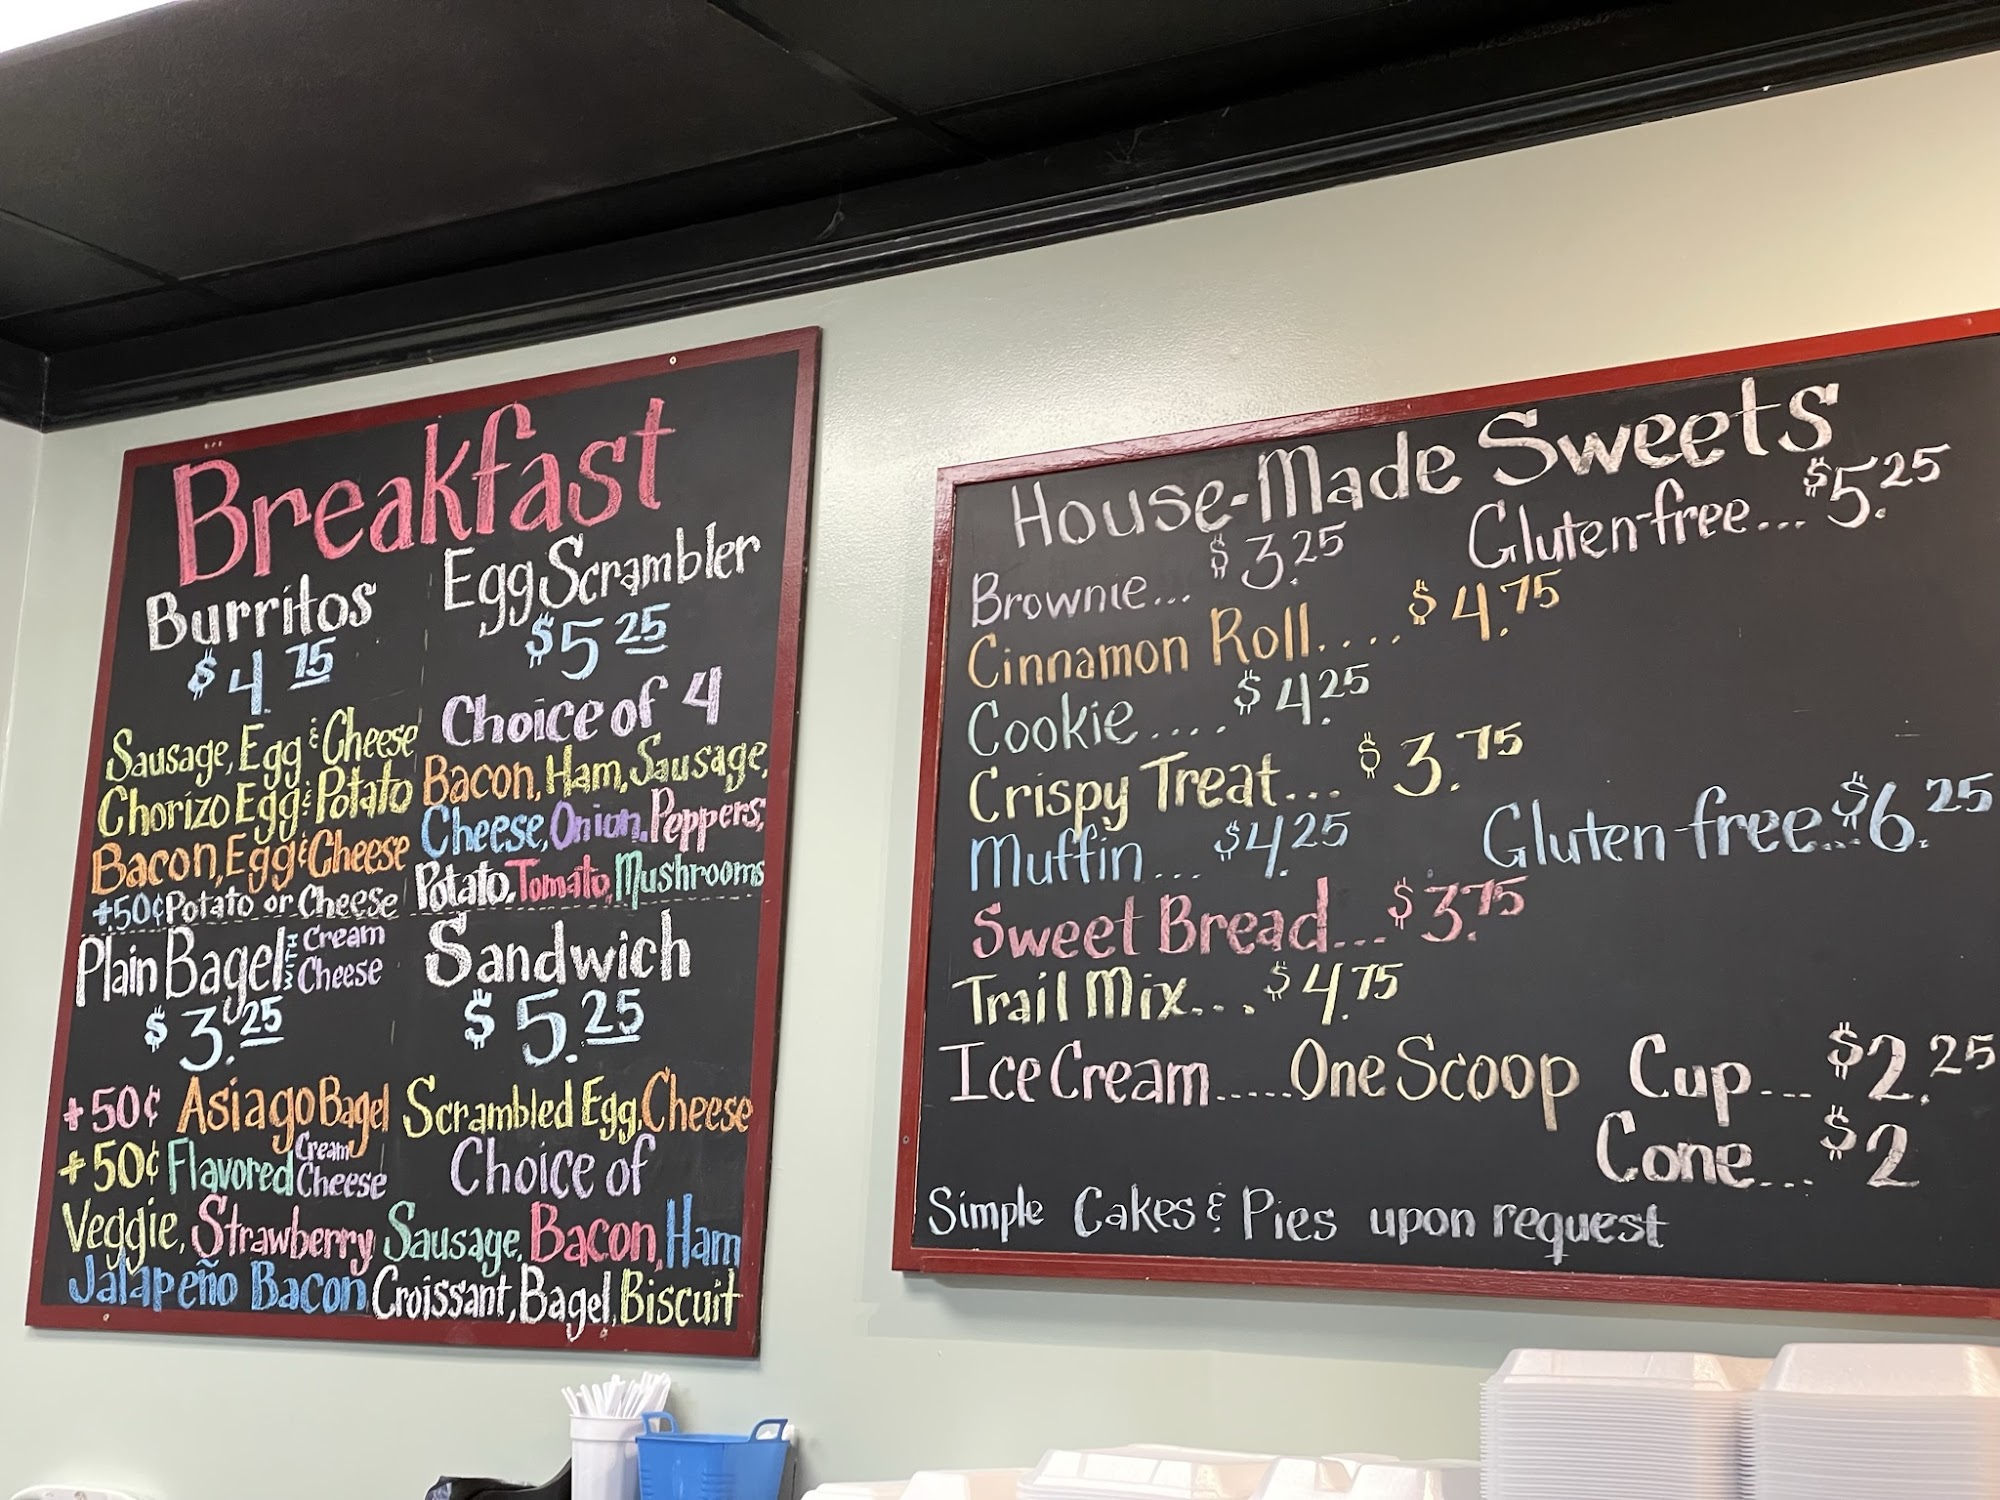 Breakfast
Burritos
$4.75
Sausage, Egg & Cheese
Chorizo Egg & Potato
Bacon, Egg & Cheese
+.50¢ Potato or Cheese
Egg Scrambler
$5.25
Choice of 4
Bacon, Ham, Sausage,
Cheese, Onion, Peppers,
Potato, Tomato, Mushrooms
Plain Bagel with Cream Cheese
$3.25
+50¢ Asiago Bagel
+50¢ Flavored Cream Cheese
Veggie, Strawberry
Jalapeño Bacon
Sandwich
$5.25
Scrambled Egg, Cheese
Choice of
Sausage, Bacon, Ham
Croissant, Bagel, Biscuit
House-Made Sweets
Brownie... $3.25 Gluten-free... $5.25
Cinnamon Roll.... $4.75
Cookie.... $4.25
Crispy Treat... $3.75
Muffin... $4.25 Gluten-free... $6.25
Sweet Bread... $3.75
Trail Mix... $4.75
Ice Cream.....One Scoop Cup... $2.25
Cone... $2
Simple Cakes & Pies upon request